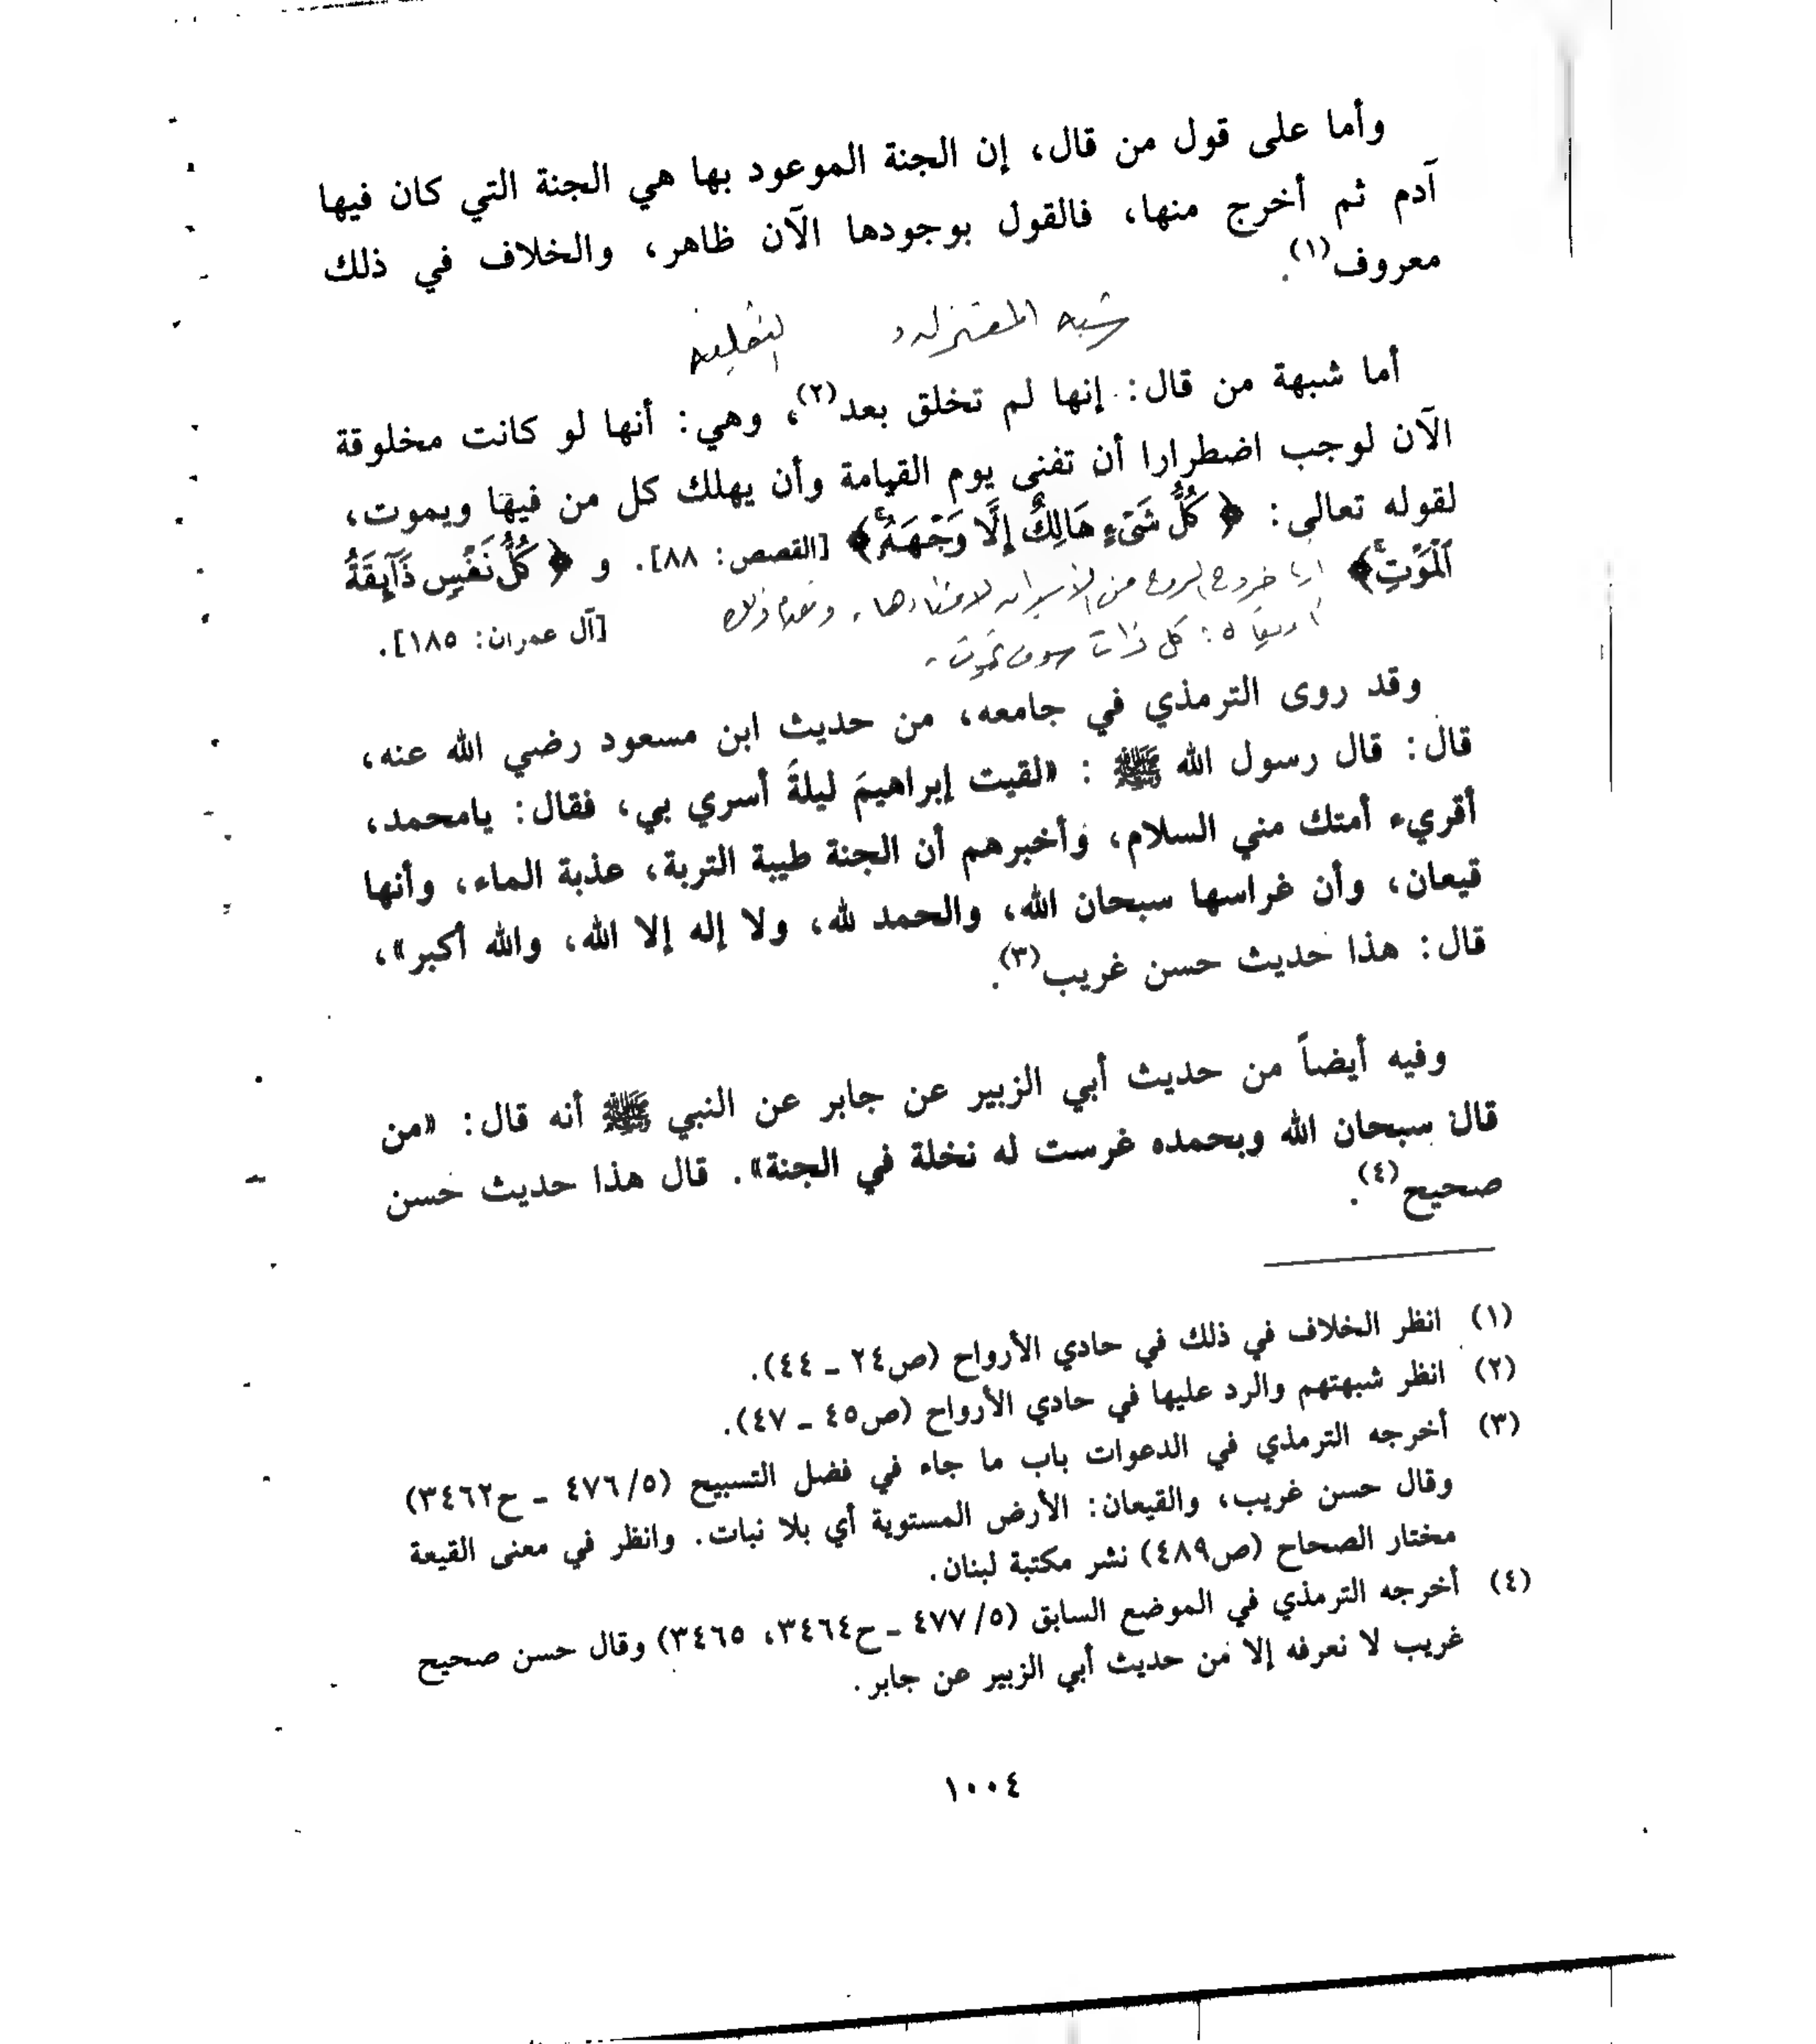 وأما على قول من قال، إن الجنة الموعود بها هي الجنة التي كان فيها
آدم ثم أخرج منها، فالقول بوجودها الآن ظاهر، والخلاف في ذلك
معروف(١).
شبه المعتزلة النقلية
أما شبهة من قال: إنها لم تخلق بعد(٢)، وهي: أنها لو كانت مخلوقة
الآن لوجب اضطرارا أن تفنى يوم القيامة وأن يهلك كل من فيها ويموت،
لقوله تعالى: ﴿كُلُّ شَىْءٍ هَالِكٌ إِلَّا وَجْهَهُۥۚ﴾ [القصص: ٨٨]. و ﴿كُلُّ نَفْسٍ ذَآئِقَةُ
ٱلْمَوْتِۗ﴾ [آل عمران: ١٨٥].
خروج الروح من
كل ذات سوف تموت
وقد روى الترمذي في جامعه، من حديث ابن مسعود رضي الله عنه،
قال: قال رسول الله ﷺ : «لقيت إبراهيمَ ليلةَ أسري بي، فقال: يامحمد،
أقريء أمتك مني السلام، وأخبرهم أن الجنة طيبة التربة، عذبة الماء، وأنها
قيعان، وأن غراسها سبحان الله، والحمد لله، ولا إله إلا الله، والله أكبر»،
قال: هذا حديث حسن غريب(٣).
وفيه أيضاً من حديث أبي الزبير عن جابر عن النبي ﷺ أنه قال: «من
قال سبحان الله وبحمده غرست له نخلة في الجنة». قال هذا حديث حسن
صحيح(٤).
(١) انظر الخلاف في ذلك في حادي الأرواح (ص٢٤ ـ ٤٤).
(٢) انظر شبهتهم والرد عليها في حادي الأرواح (ص٤٥ ـ ٤٧).
(٣) أخرجه الترمذي في الدعوات باب ما جاء في فضل التسبيح (٤٧٦/٥ ـ ح٣٤٦٢)
وقال حسن غريب، والقيعان: الأرض المستوية أي بلا نبات. وانظر في معنى القيعة
مختار الصحاح (ص٤٨٩) نشر مكتبة لبنان.
(٤) أخرجه الترمذي في الموضع السابق (٤٧٧/٥ ـ ح٣٤٦٤، ٣٤٦٥) وقال حسن صحيح
غريب لا نعرفه إلا من حديث أبي الزبير عن جابر.
١٠٠٤